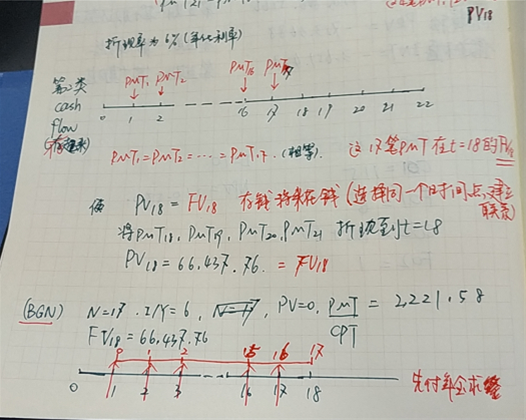 PV18
折现率为6%(年化利率)
第二类
cash
flow
PMT1 PMT2 PMT16 PMT17
0 1 2 16 17 18 19 20 21 22
PMT1=PMT2=……=PMT17.(相等) 这17笔PMT在t=18的FV18
使 PV18 = FV18 存钱将来花钱(选择同一个时间点,建立联系)
将PMT18, PMT19, PMT20, PMT21 折现到t=18
PV18 = 66,437.76. = FV18
(BGN) N=17. I/Y=6, PV=0, PMT = 2,221.58
FV18=66,437.76 CPT
0 1 2 15 16 17
0 1 2 3 16 17 18 先付年金求